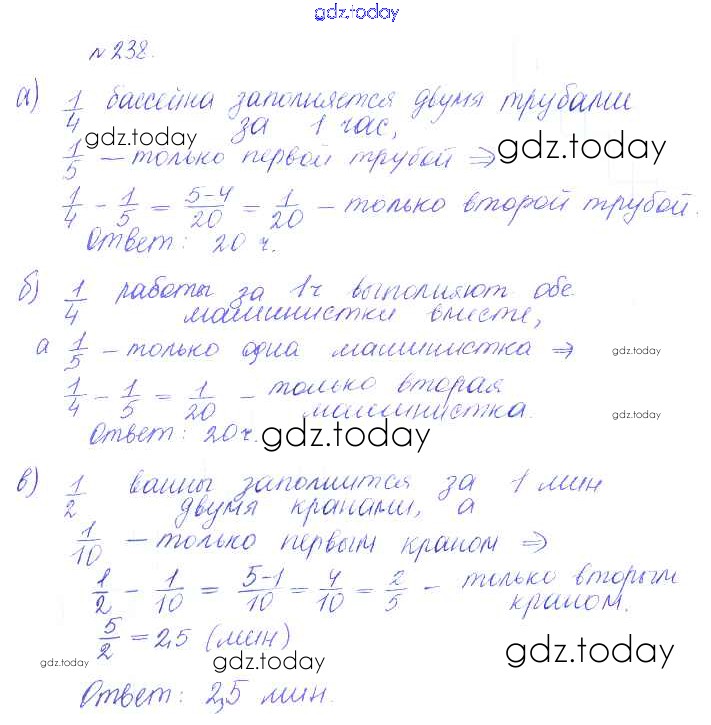 gdz.today
№238.
а) 1/4 бассейна заполняется двумя трубами
за 1 час,
gdz.today
gdz.today
1/5 – только первой трубой ⇒
1/4 - 1/5 = 5-4/20 = 1/20 – только второй трубой.
Ответ: 20 ч.
б) 1/4 работы за 1ч выполняют обе
машинистки вместе,
а 1/5 – только одна машинистка ⇒
gdz.today
1/4 - 1/5 = 1/20 - только вторая
машинистка.
gdz.today
Ответ: 20ч.
gdz.today
в) 1/2 ванны заполнится за 1 мин
двумя кранами, а
1/10 – только первым краном ⇒
1/2 - 1/10 = 5-1/10 = 4/10 = 2/5 – только вторым
краном.
5/2 = 2,5 (мин)
gdz.today
gdz.today
gdz.today
Ответ: 2,5 мин.